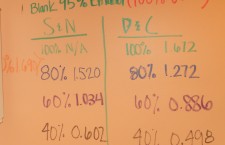 1 Blank 95% Ethanol (100%
S&N D&L
100% N/A 100% 1.612
80% 1.520 80% 1.272
60% 1.034 60% 0.886
40% 0.602 40% 0.498